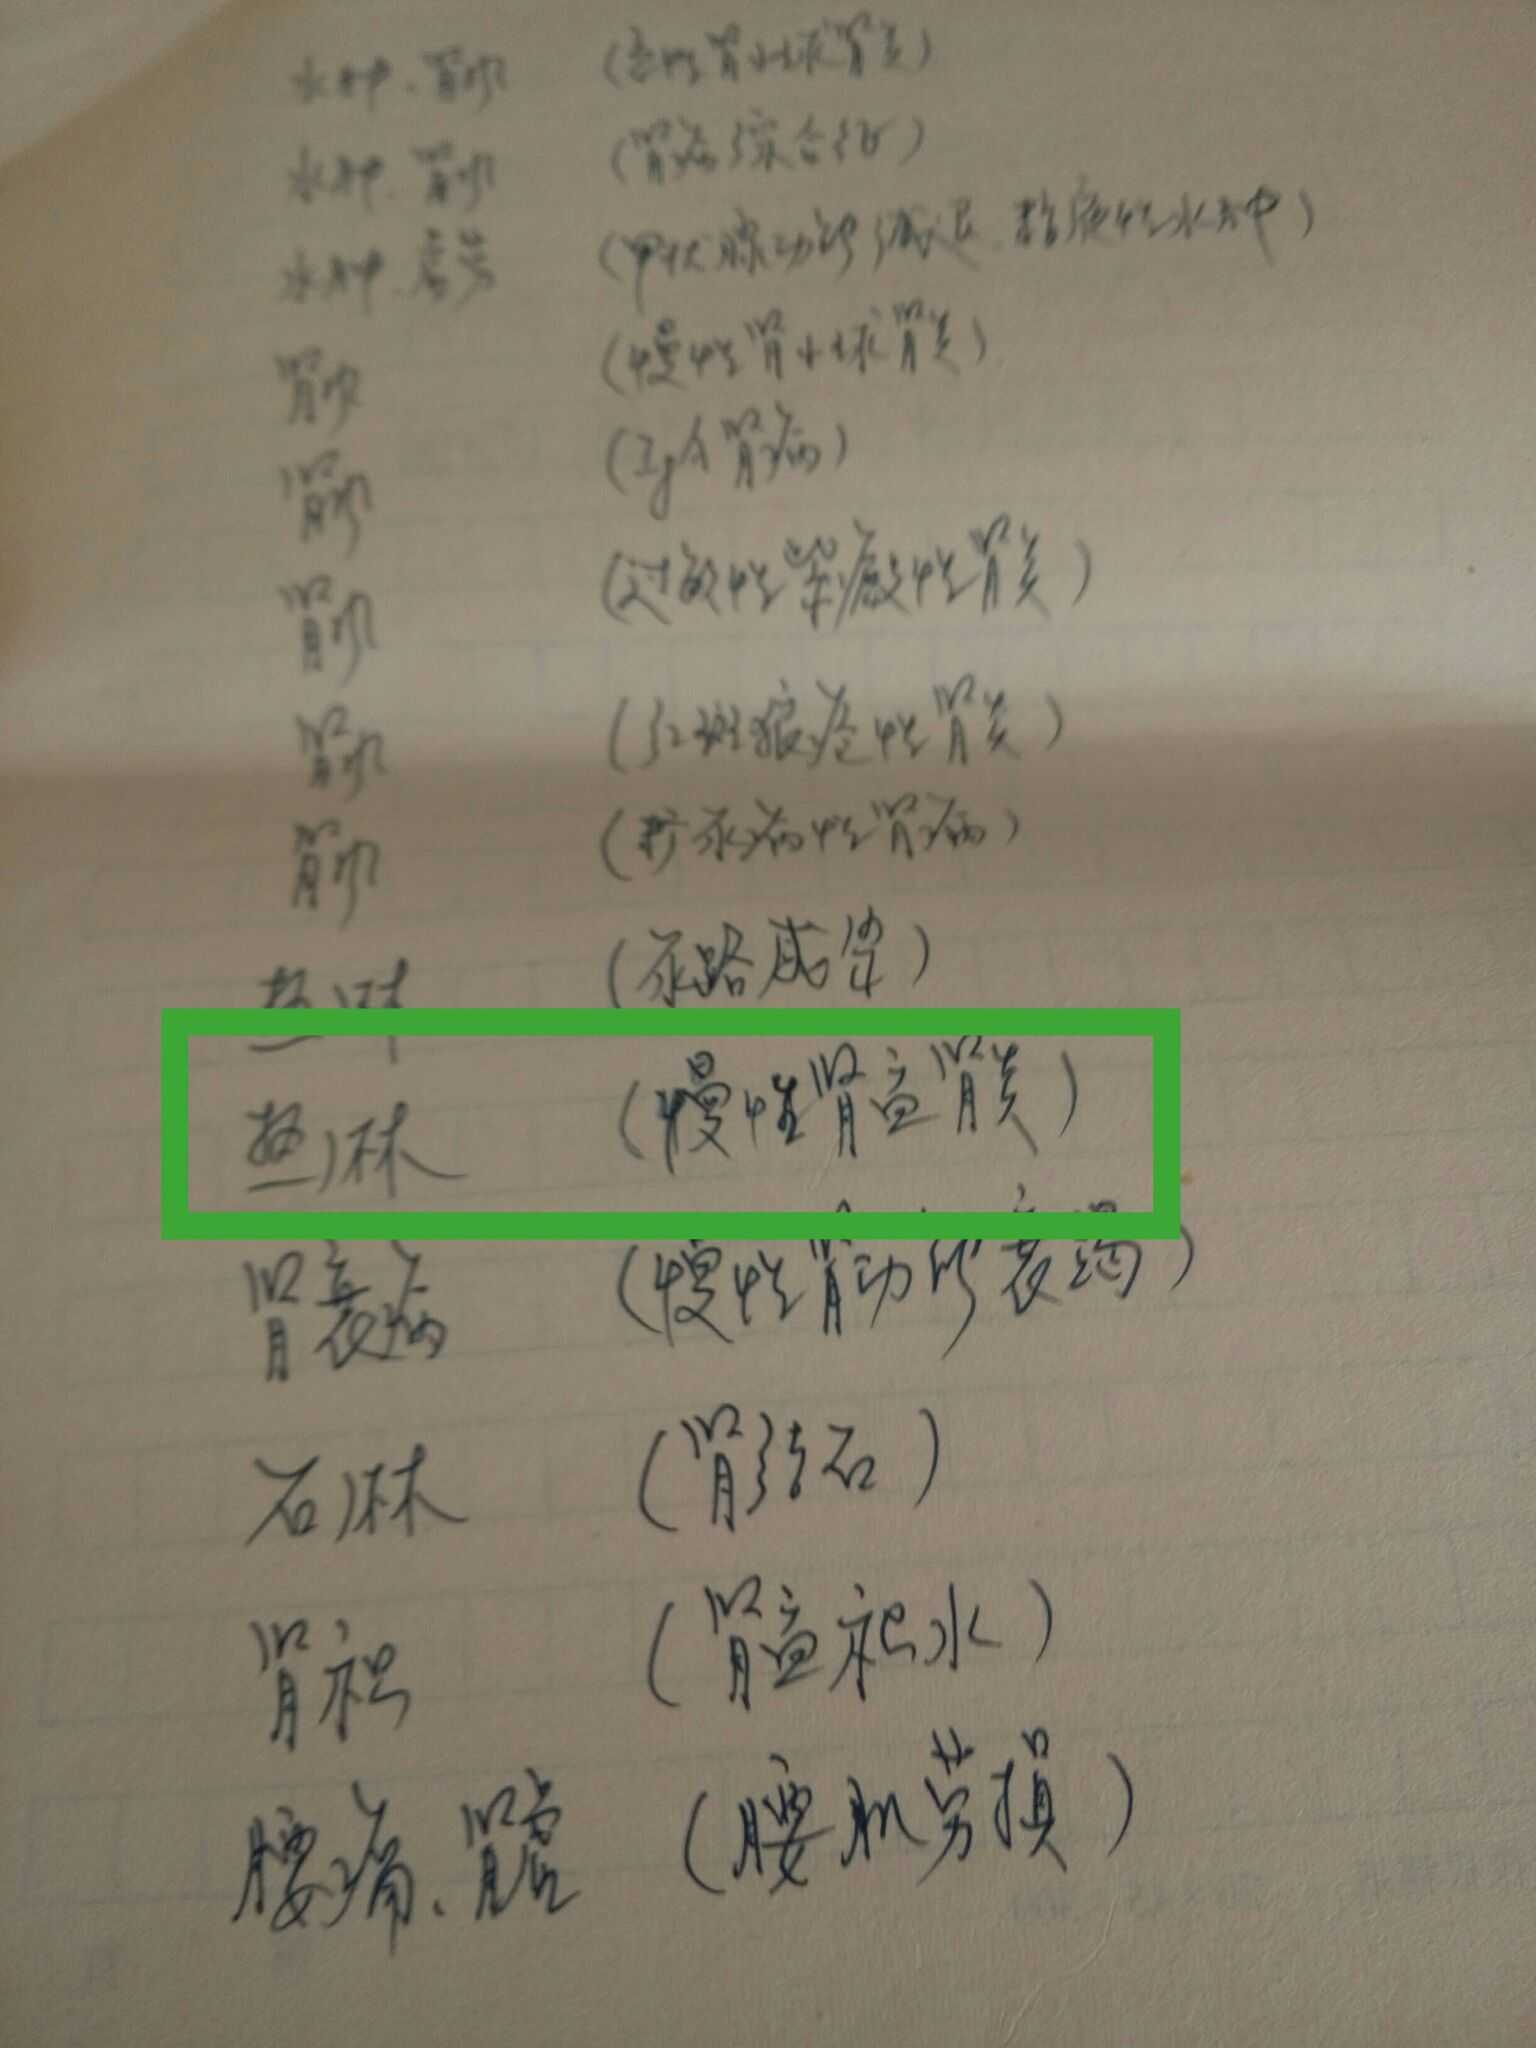 水肿、肾水 (急性肾小球肾炎)
水肿、肾水 (肾病综合征)
水肿、虚劳 (甲状腺功能减退、粘液性水肿)
肾水 (慢性肾小球肾炎)
肾水 (IgA肾病)
肾水 (过敏性紫癜性肾炎)
肾水 (红斑狼疮性肾炎)
肾水 (糖尿病性肾病)
热淋 (尿路感染)
热淋 (慢性肾盂肾炎)
肾衰病 (慢性肾功能衰竭)
石淋 (肾结石)
肾积 (肾盂积水)
腰痛、肾虚 (腰肌劳损)